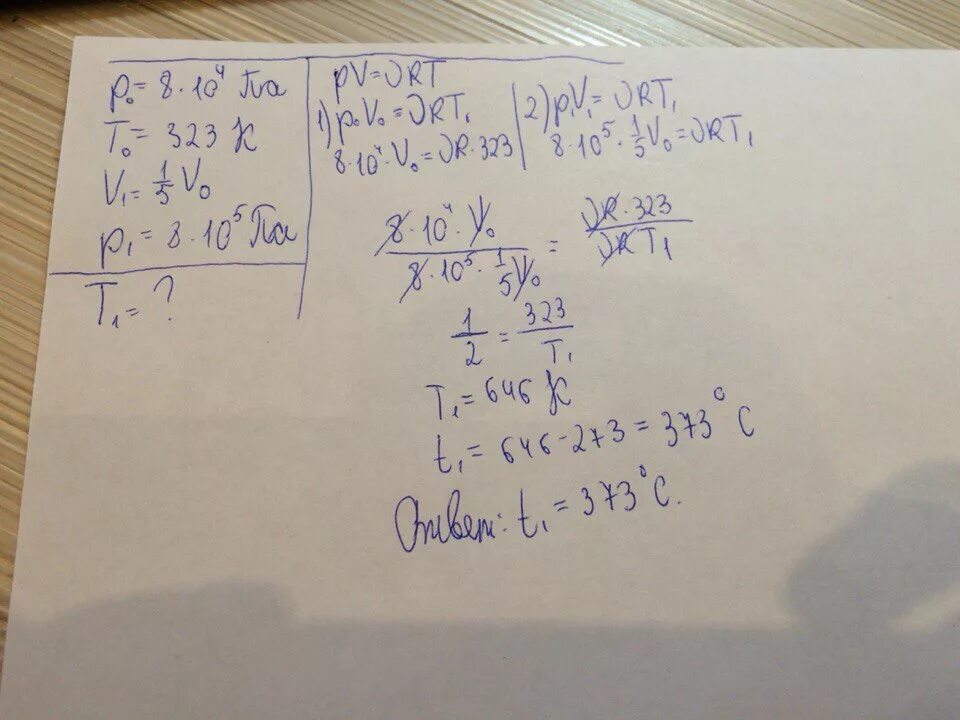 p₀ = 8·10⁴ Па
T₀ = 323 К
V₁ = 1/5 V₀
p₁ = 8·10⁵ Па
T₁ = ?
pV = νRT
1) p₀V₀ = νRT₁
8·10⁴·V₀ = νR·323
2) p₁V₁ = νRT₁
8·10⁵·1/5V₀ = νRT₁
8·10⁴·V₀ / 8·10⁵·1/5V₀ = νR·323 / νRT₁
1/2 = 323/T₁
T₁ = 646 К
t₁ = 646 - 273 = 373°C
Ответ: t₁ = 373°C.